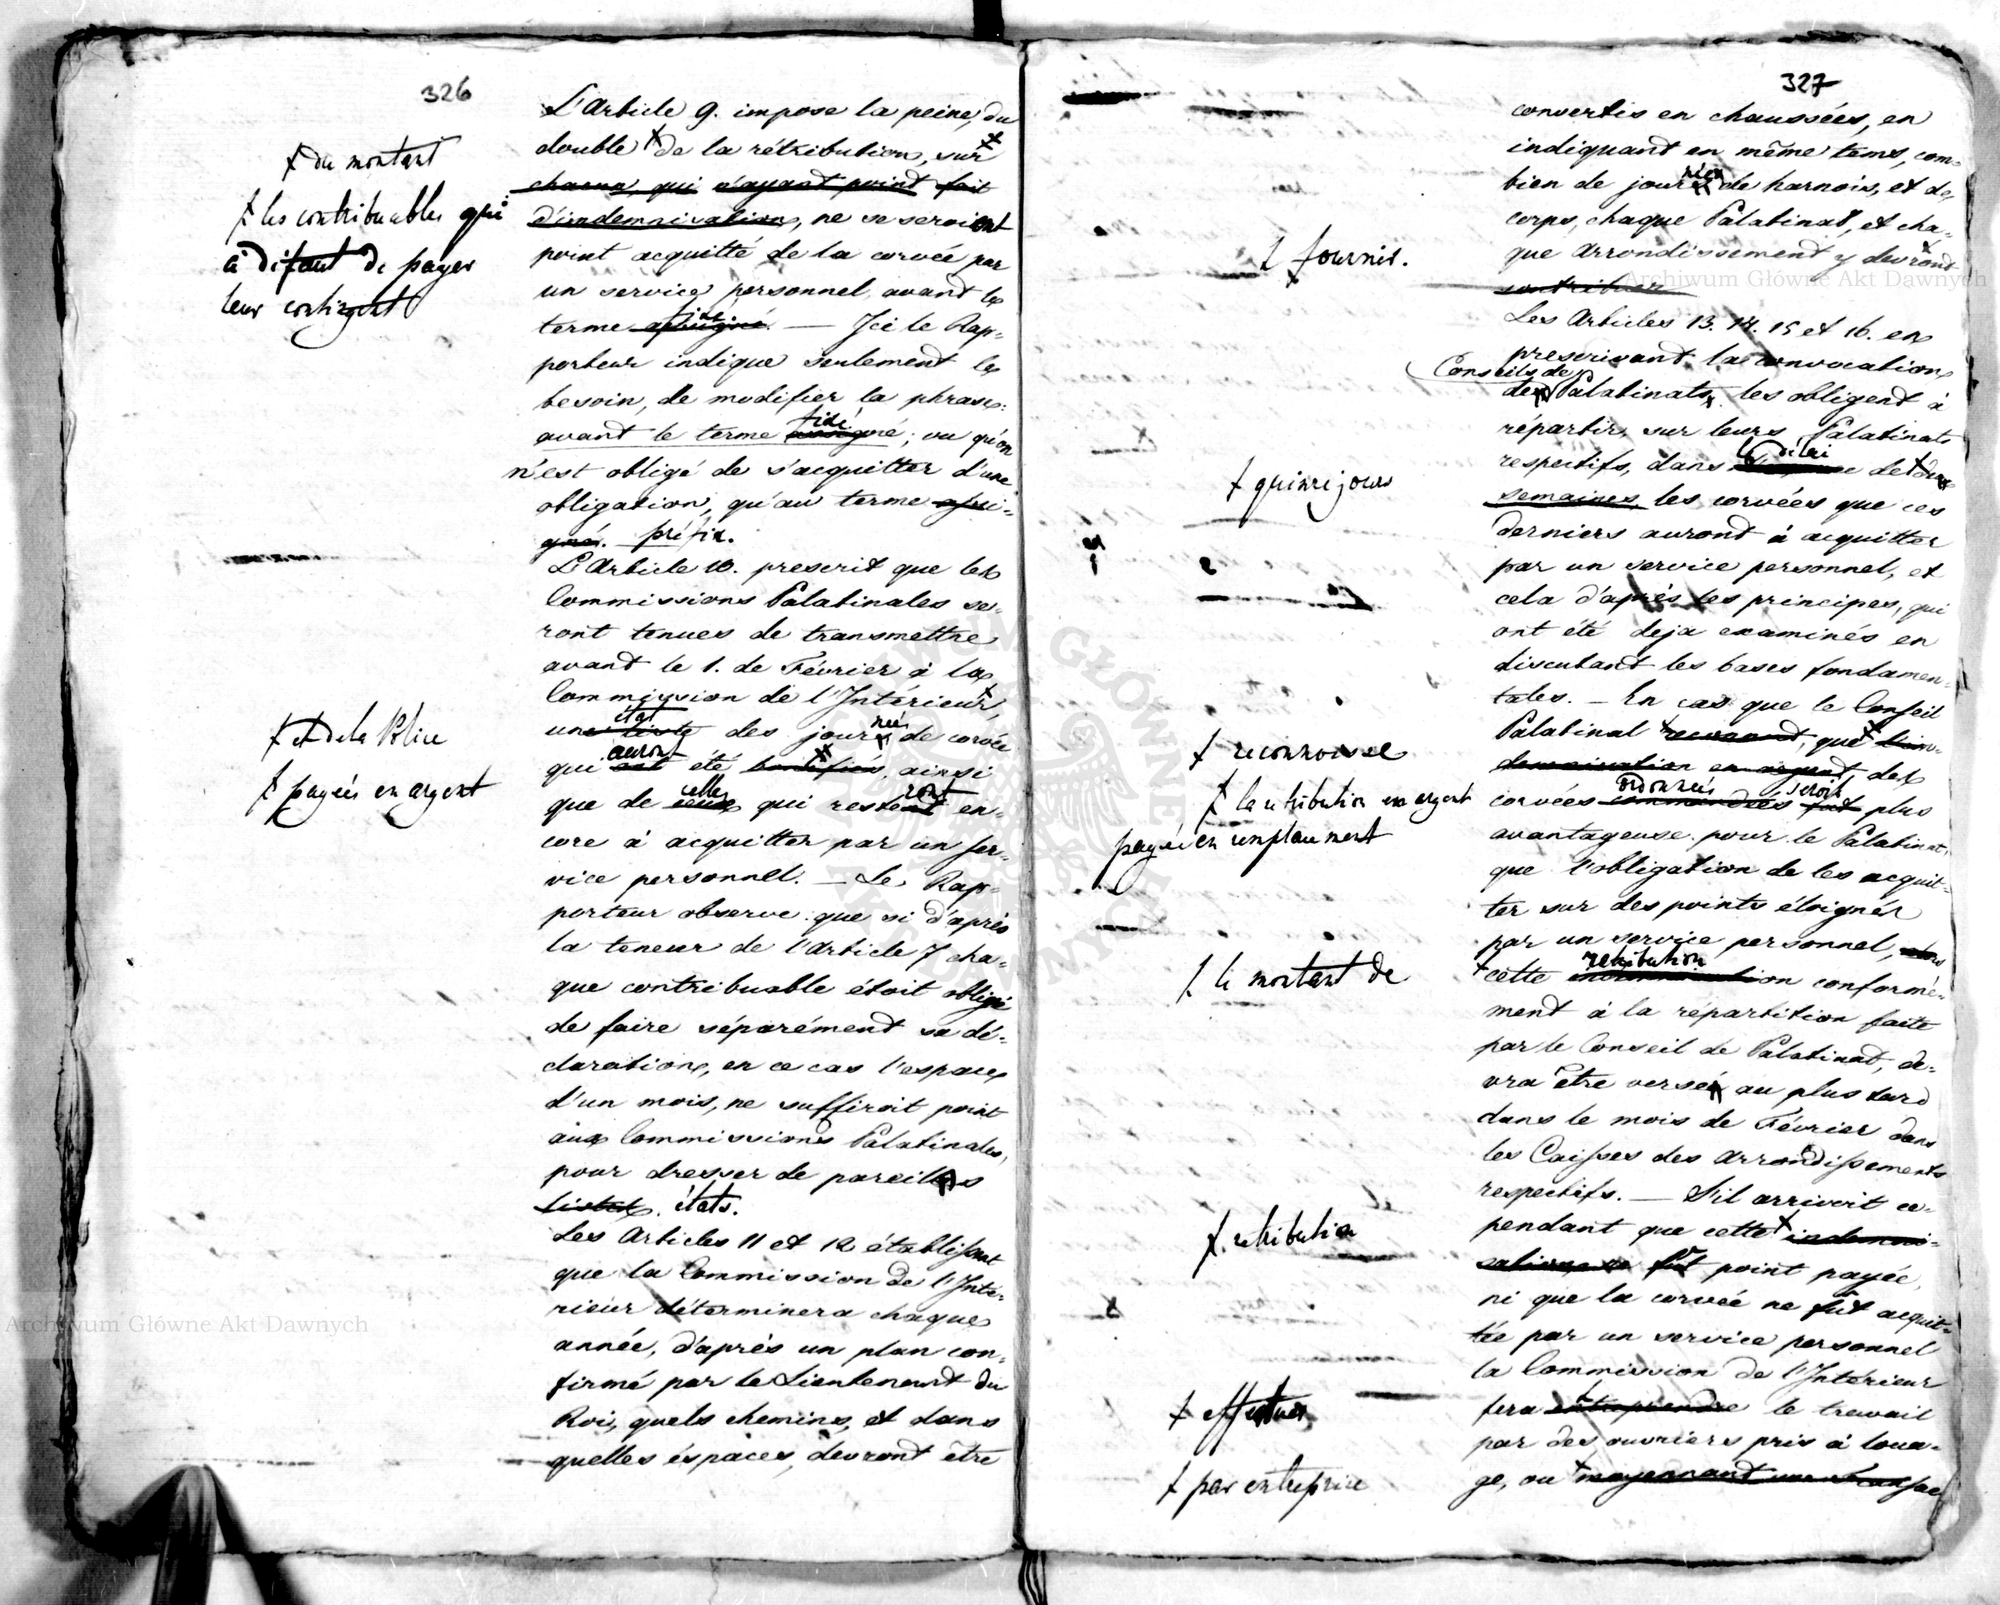 326
L'Article 9. impose la peine, du
double + de la rétribution, sur +
chacun, qui n'ayant point fait
d'indemnisation, ne se seroient
point acquitté de la corvée par
un service personnel avant le
terme assigné fixé. — Ici le Rap-
porteur indique seulement le
besoin, de modifier la phrase:
avant le terme assigné fixé; vu qu'on
n'est obligé de s'acquitter d'une
obligation, qu'au terme assi-
gné. préfix.
L'Article 10. prescrit que les
Commissions Palatinales se-
ront tenues de transmettre
avant le 1. de Février à la
Commission de l'Intérieur, +
une liste état des journées de corvée
qui ont auront été bonifiés +, ainsi
que de ceux celles qui resteront en-
core à acquitter par un ser-
vice personnel. — Le Rap-
porteur observe que si d'après
la teneur de l'Article 7 cha-
que contribuable étoit obligé
de faire séparément sa dé-
claration, en ce cas l'espace
d'un mois, ne suffiroit point
aux Commissions Palatinales,
pour dresser de pareils
listes. états.
Les Articles 11 et 12 établissent
que la Commission de l'Inté-
rieur déterminera chaque
année, d'après un plan con-
firmé par le Lieutenant du
Roi, quels chemins, et dans
quelles éspaces, devront être
+ du montant
+ les contribuables qui
à défaut de payer
leur contingent
+ et de la Police
+ payées en argent
327
convertis en chaussées, en
indiquant en même tems, com-
bien de journées de harnois, et de
corps, chaque Palatinat, et cha-
que Arrondissement y devront +
contribuer
Les Articles 13. 14. 15 et 16. en
prescrivant la convocation
Conseils de
des Palatinats, les obligent à
répartir, sur leurs Palatinats
respectifs, dans le délai de + deux
semaines, les corvées que ces
derniers auront à acquitter
par un service personnel, et
cela d'après les principes, qui
ont été deja examinés en
discutant les bases fondamen-
tales. — En cas que le Conseil
Palatinal + reconnut, que + l'in-
demnisation en argent, des
corvées commandées ordonnées fut seroit plus
avantageuse pour le Palatinat,
que l'obligation de les acquit-
ter sur des points éloignés
par un service personnel, alors
+ cette indemnisation retribution conformé-
ment à la répartition faite
par le Conseil de Palatinat, de-
vra être versé au plus tard
dans le mois de Février dans
les Caisses des Arrondissements
respectifs. — S'il arrivoit ce-
pendant que cette + indemni-
sation ne fut point payée,
ni que la corvée ne fût acquit-
tée par un service personnel
la Commission de l'Intérieur
fera + entreprendre le travail
par des ouvriers pris à loua-
ge, ou + moyennant une
+ fournir.
+ quinze jours
+ reconnoisse
+ la retribution en argent
payée en remplacement
+ le montant de
+ retribution
+ effectuer
+ par entreprise
Archiwum Główne Akt Dawnych
Archiwum Główne Akt Dawnych